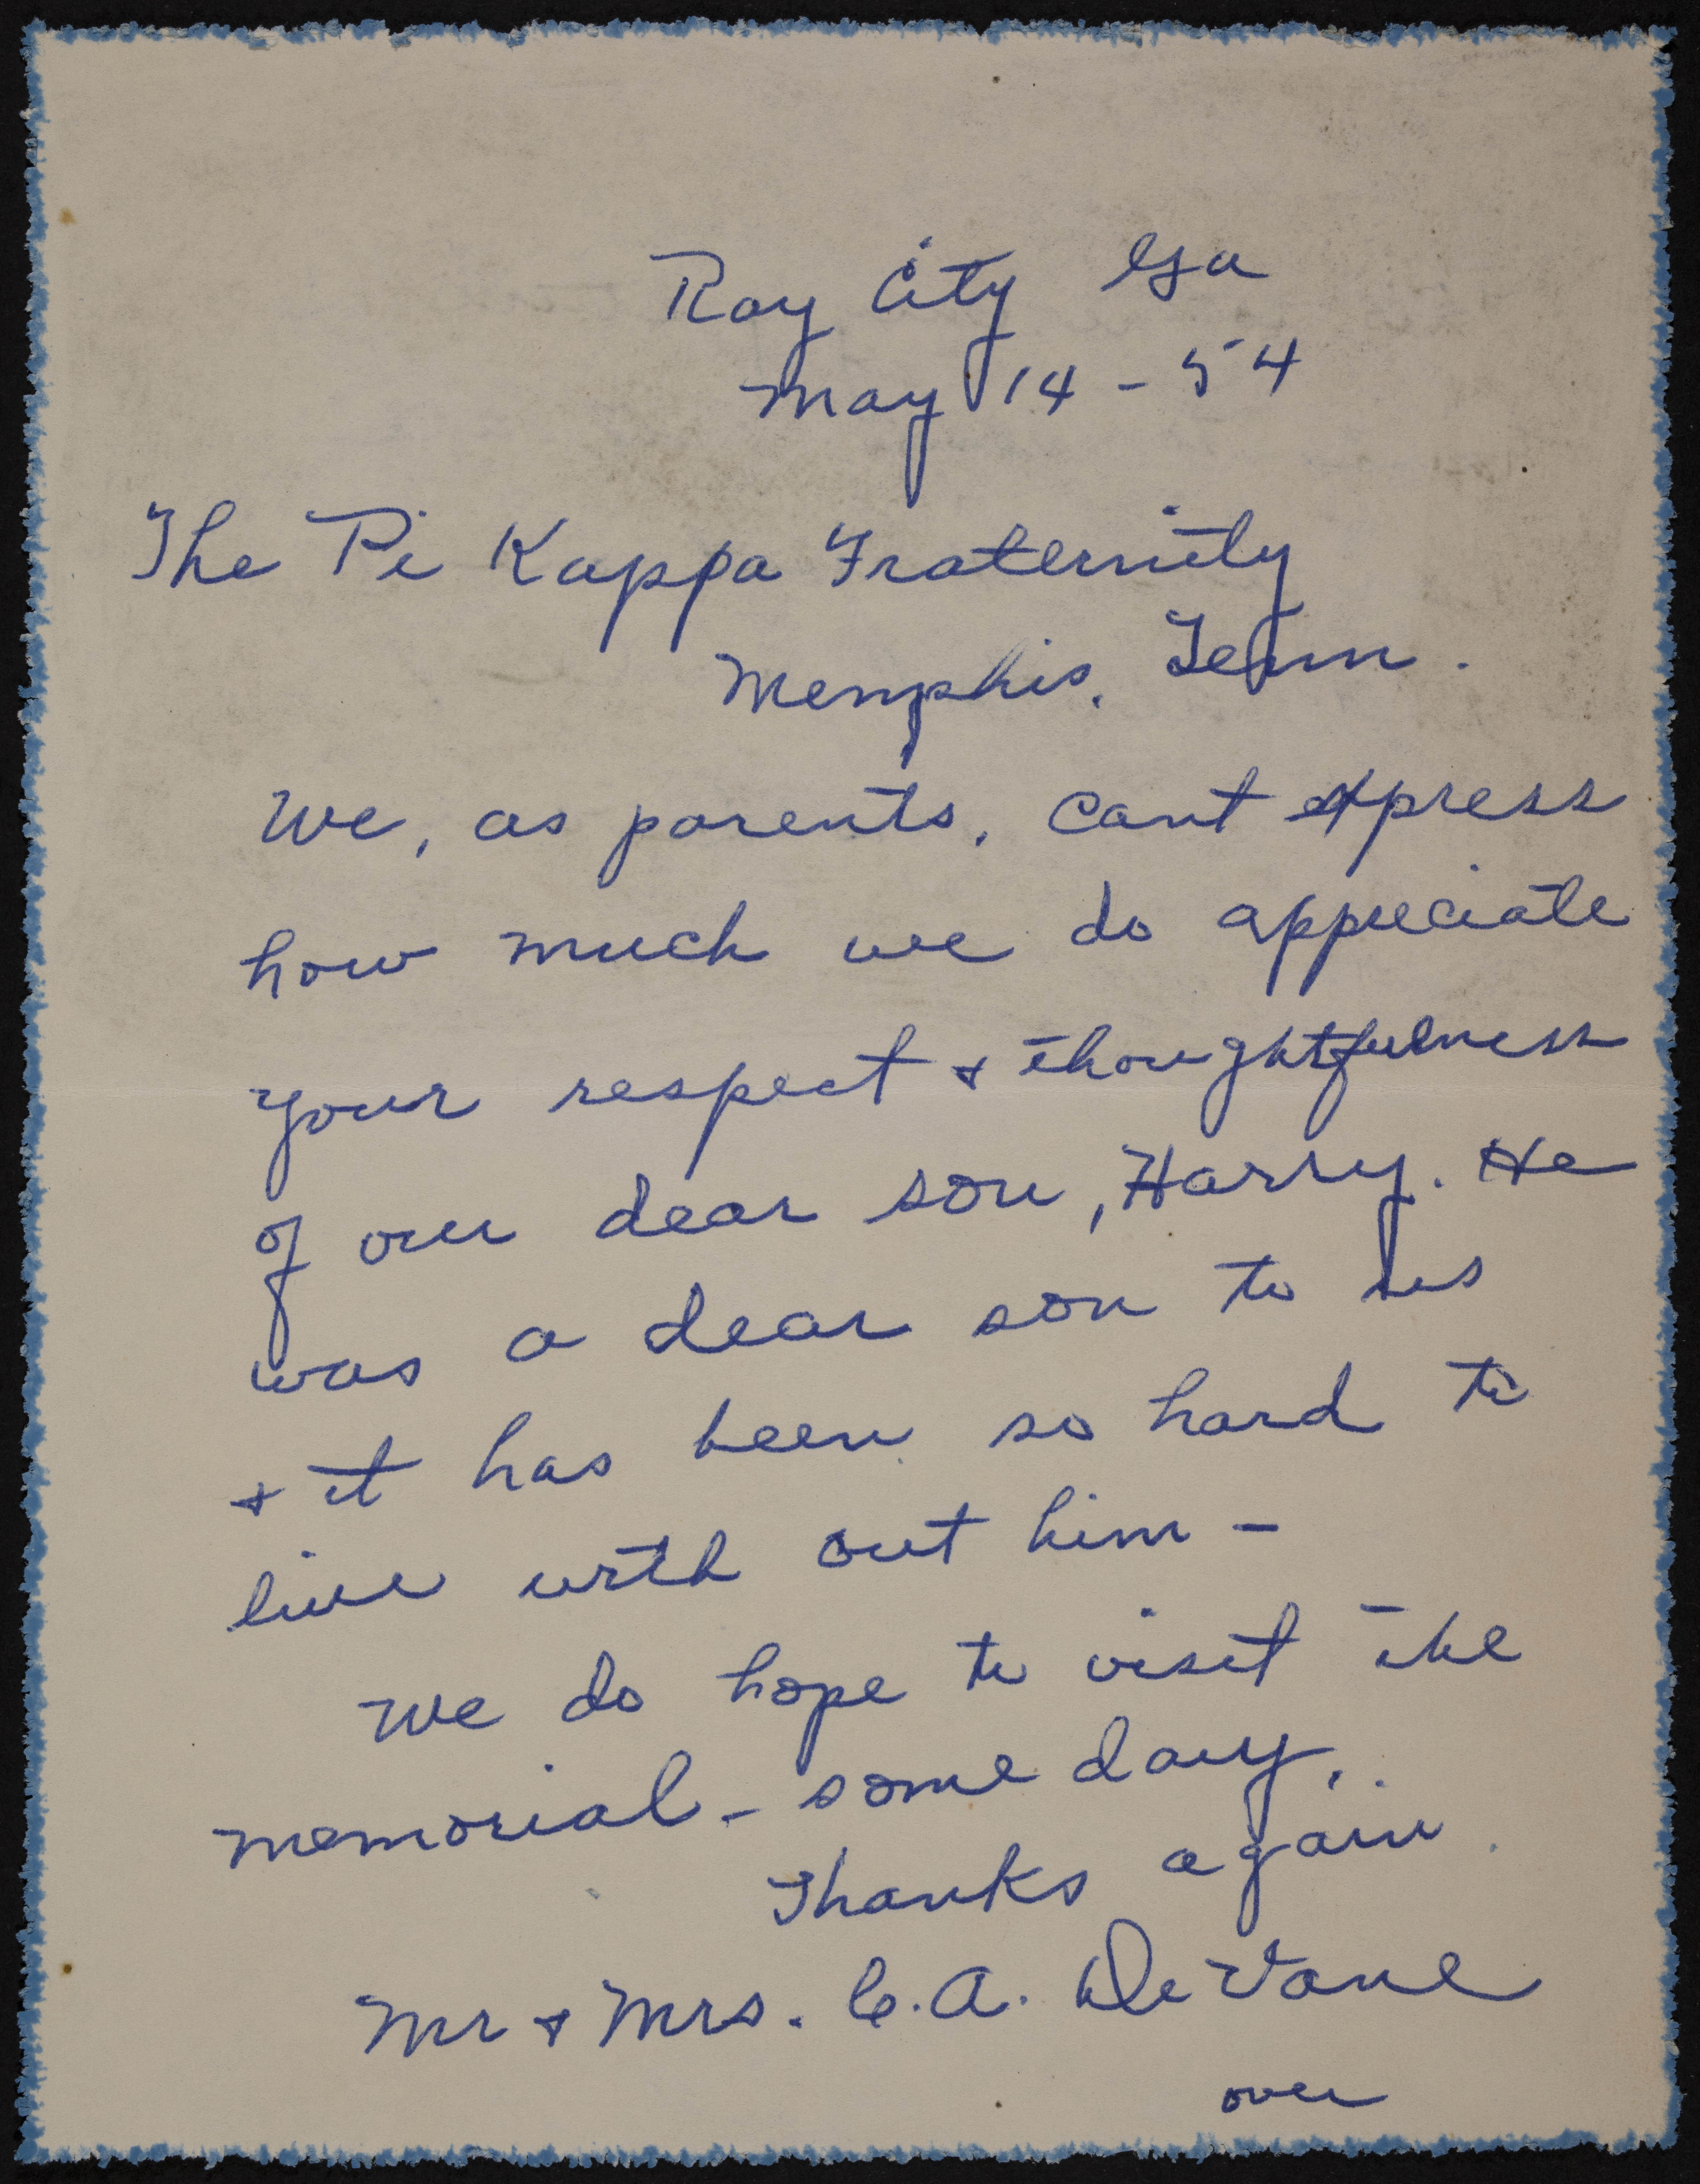 Ray City Ga
May 14 - 54
The Pi Kappa Fraternity
Memphis, Tenn.
We, as parents, cant express
how much we do appreciate
your respect + thoughtfulness
of our dear son, Harry. He
was a dear son to us
+ it has been so hard to
live with out him -
We do hope to visit the
memorial - some day.
Thanks again.
Mr + Mrs. C. A. DeVane
over